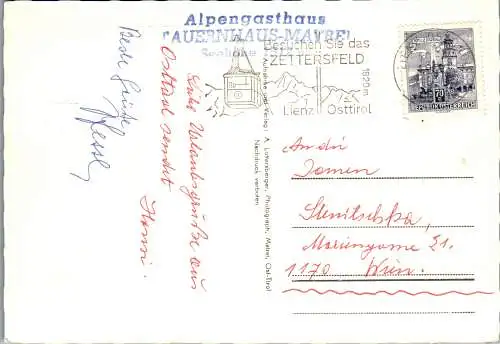 Alpengasthaus
TAUERNHAUS-MATREI
Besuchen Sie das
ZETTERSFELD
1820m
Lienz Osttirol
70
REPUBLIK ÖSTERREICH
Beste Grüße
Gute Urlaubsgrüße aus
Osttirol sendet
Hansi.
Aufnahme und Verlag: A. Lottersberger, Photograph, Matrei, Ost-Tirol
Nachdruck verboten
An die
Damen
Stenitschka,
Mariengasse 21.
1170 Wien.